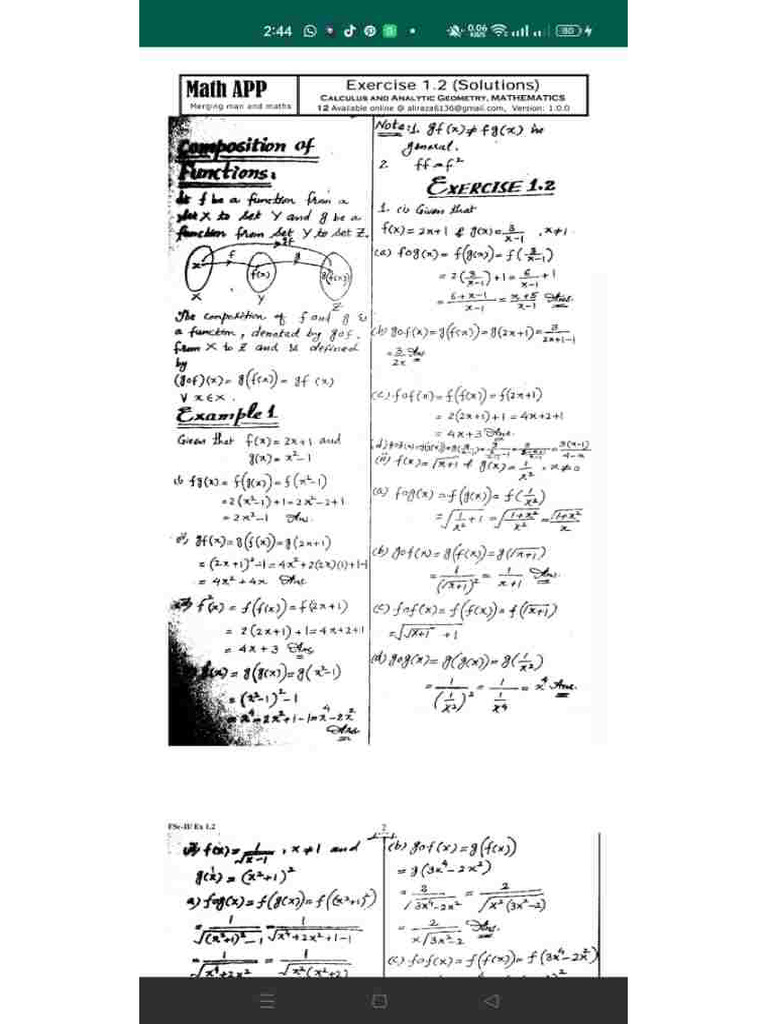 2:44
0.06
KB/S
80
Math APP
Merging man and maths
Exercise 1.2 (Solutions)
CALCULUS AND ANALYTIC GEOMETRY, MATHEMATICS
12 Available online @ aliraza6136@gmail.com, Version: 1.0.0
Composition of
Functions:
let f be a function from a
set X to set Y and g be a
function from set Y to set Z.
gf
f
g
x
f(x)
g(f(x))
X
Y
Z
The composition of f and g is
a function, denoted by gof.
from X to Z and is defined
by
(gof)(x) = g(f(x)) = gf(x)
∀ x∈X.
Example 1
Given that f(x) = 2x+1 and
g(x) = x²-1
fg(x) = f(g(x)) = f(x²-1)
= 2(x²-1)+1 = 2x²-2+1
= 2x²-1 Ans.
gf(x) = g(f(x)) = g(2x+1)
= (2x+1)²-1 = 4x²+2(2x)(1)+1-1
= 4x²+4x Ans
f²(x) = f(f(x)) = f(2x+1)
= 2(2x+1)+1 = 4x+2+1
= 4x+3 Ans
(x) = g(g(x)) = g(x²-1)
= (x²-1)²-1
= x⁴-2x²+1-1 = x⁴-2x²
Ans
Note: 1. gf(x) ≠ fg(x) in
general.
2. ff = f²
EXERCISE 1.2
1. (i) Given that
f(x) = 2x+1 & g(x) = 3/(x-1), x≠1
(a) fog(x) = f(g(x)) = f(3/(x-1))
= 2(3/(x-1))+1 = 6/(x-1) + 1
= (6+x-1)/(x-1) = (x+5)/(x-1) Ans.
(b) gof(x) = g(f(x)) = g(2x+1) = 3/(2x+1-1)
= 3/2x Ans
(c) fof(x) = f(f(x)) = f(2x+1)
= 2(2x+1)+1 = 4x+2+1
= 4x+3 Ans.
= 3(x-1)/(4-x)
(ii) f(x) = √(x+1) & g(x) = 1/x², x≠0
(a) fog(x) = f(g(x)) = f(1/x²)
= √(1/x² + 1) = √((1+x²)/x²) = √(1+x²)/x
(b) gof(x) = g(f(x)) = g(√(x+1))
= 1/(√(x+1))² = 1/(x+1) Ans.
(c) fof(x) = f(f(x)) = f(√(x+1))
= √(√(x+1) + 1)
(d) gog(x) = g(g(x)) = g(1/x²)
= 1/(1/x²)² = 1/(1/x⁴) = x⁴ Ans.
FSc-II/ Ex 1.2
2
f(x) = 1/√(x-1), x≠1 and
g(x) = (x²+1)²
a) fog(x) = f(g(x)) = f((x²+1)²)
= 1/√((x²+1)²-1) = 1/√(x⁴+2x²+1-1)
= 1/√(x⁴+2x²) = 1/√(x²(x²+2))
(b) gof(x) = g(f(x))
= g(3x⁴-2x²)
= 2/√(3x⁴-2x²) = 2/√(x²(3x²-2))
= 2/(x√(3x²-2)) Ans.
(c) fof(x) = f(f(x)) = f(3x⁴-2x²)